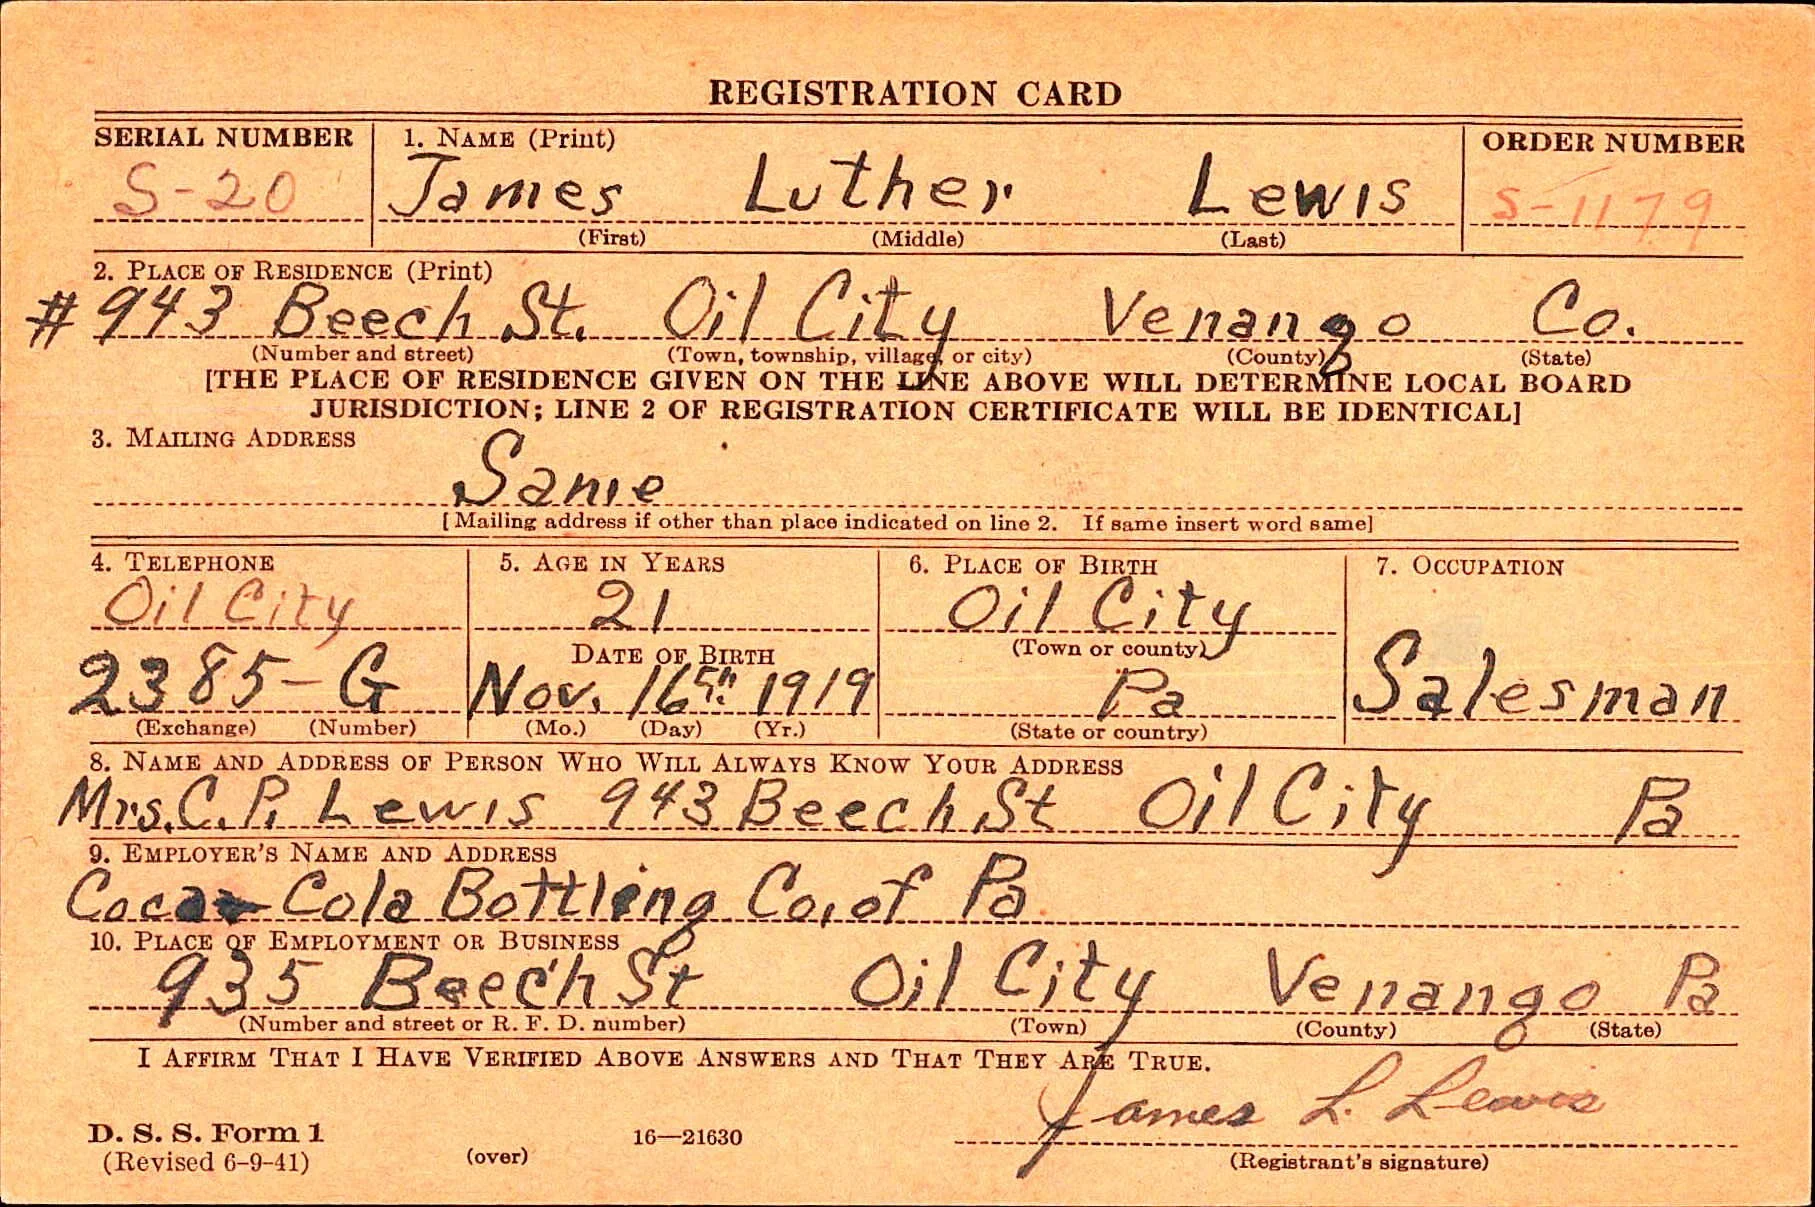 REGISTRATION CARD
SERIAL NUMBER 1. NAME (Print) ORDER NUMBER
S-20 James Luther Lewis S-1179
(First) (Middle) (Last)
2. PLACE OF RESIDENCE (Print)
# 943 Beech St. Oil City Venango Co.
(Number and street) (Town, township, village, or city) (County) (State)
[THE PLACE OF RESIDENCE GIVEN ON THE LINE ABOVE WILL DETERMINE LOCAL BOARD
JURISDICTION; LINE 2 OF REGISTRATION CERTIFICATE WILL BE IDENTICAL]
3. MAILING ADDRESS
Same
[Mailing address if other than place indicated on line 2. If same insert word same]
4. TELEPHONE 5. AGE IN YEARS 6. PLACE OF BIRTH 7. OCCUPATION
Oil City 21 Oil City
DATE OF BIRTH (Town or county)
2385-G Nov. 16th 1919 Pa Salesman
(Exchange) (Number) (Mo.) (Day) (Yr.) (State or country)
8. NAME AND ADDRESS OF PERSON WHO WILL ALWAYS KNOW YOUR ADDRESS
Mrs. C. P. Lewis 943 Beech St Oil City Pa
9. EMPLOYER'S NAME AND ADDRESS
Coca-Cola Bottling Co. of Pa
10. PLACE OF EMPLOYMENT OR BUSINESS
935 Beech St Oil City Venango Pa
(Number and street or R. F. D. number) (Town) (County) (State)
I AFFIRM THAT I HAVE VERIFIED ABOVE ANSWERS AND THAT THEY ARE TRUE.
James L. Lewis
D. S. S. Form 1 16—21630
(Revised 6-9-41) (over) (Registrant's signature)